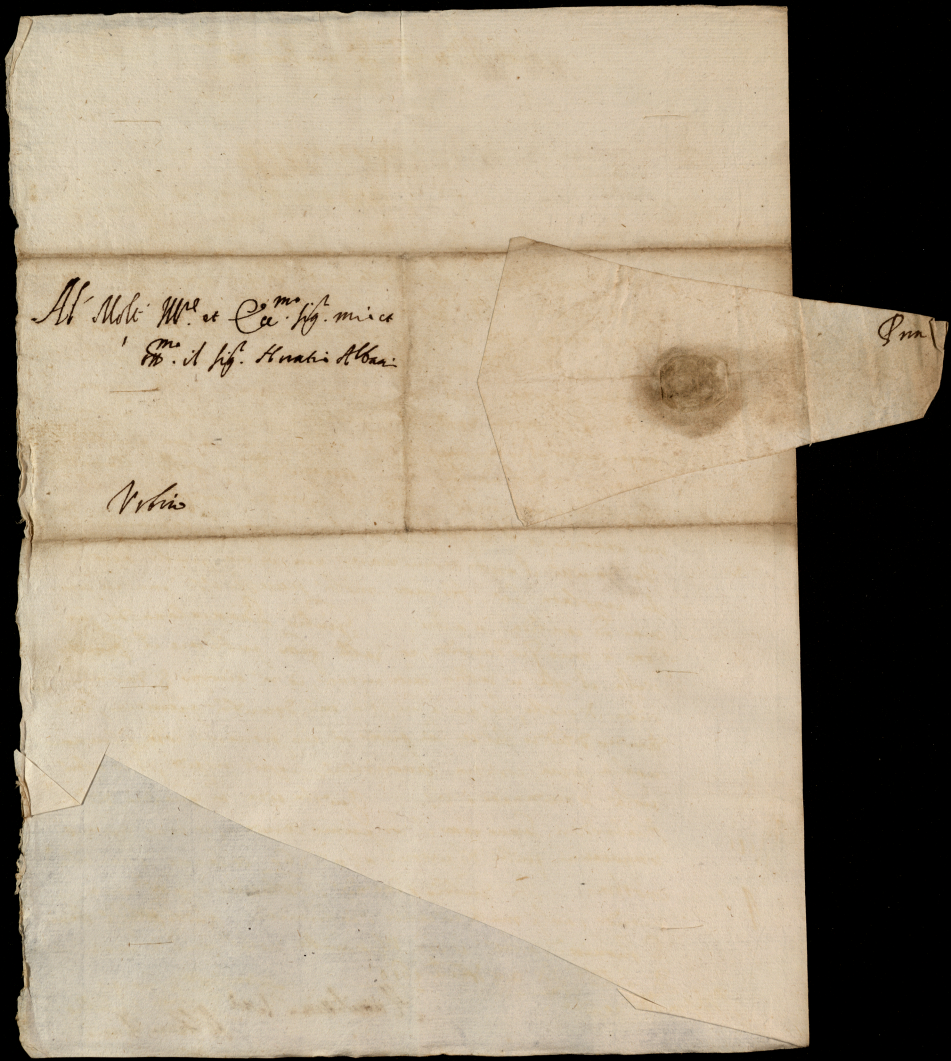 Al' Molt' Ill.re et Ecc.mo Sig.r mio et
il Sig.r Horatio Albani
Urbino